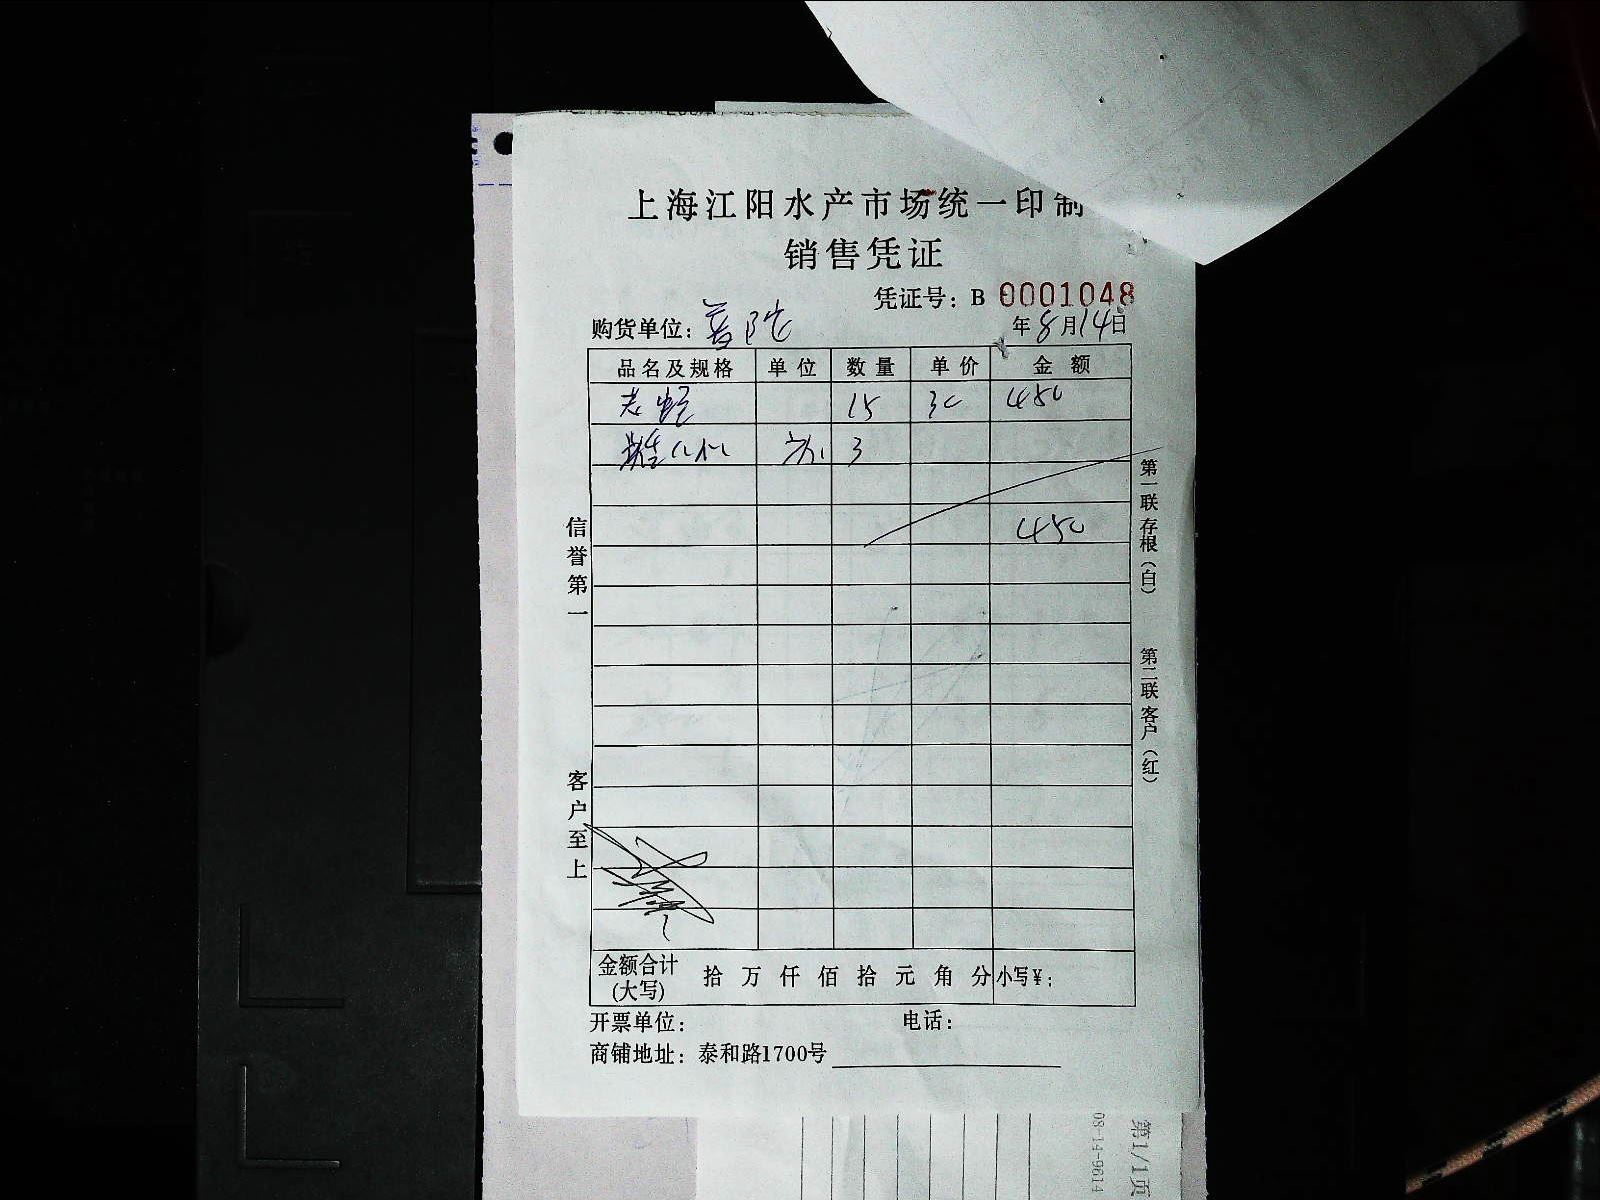 上海江阳水产市场统一印制
销售凭证
凭证号：B 0001048
购货单位：普陀 年8月14日
品名及规格 单位 数量 单价 金额
15 30 450
3
450
信誉第一
客户至上
第一联存根（白）
第二联客户（红）
金额合计(大写) 拾万仟佰拾元角分 小写¥：
开票单位： 电话：
商铺地址：泰和路1700号
第1/1页
08-14-9614